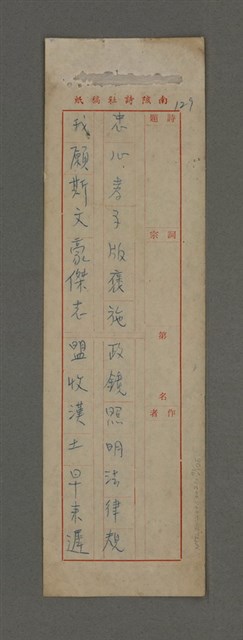 南陔詩社稿紙
129
詩題
詞宗
第 名
作者
忠心孝子版褒施 政鏡照明法律規
我願斯文豪傑志 盟收漢土早来遲